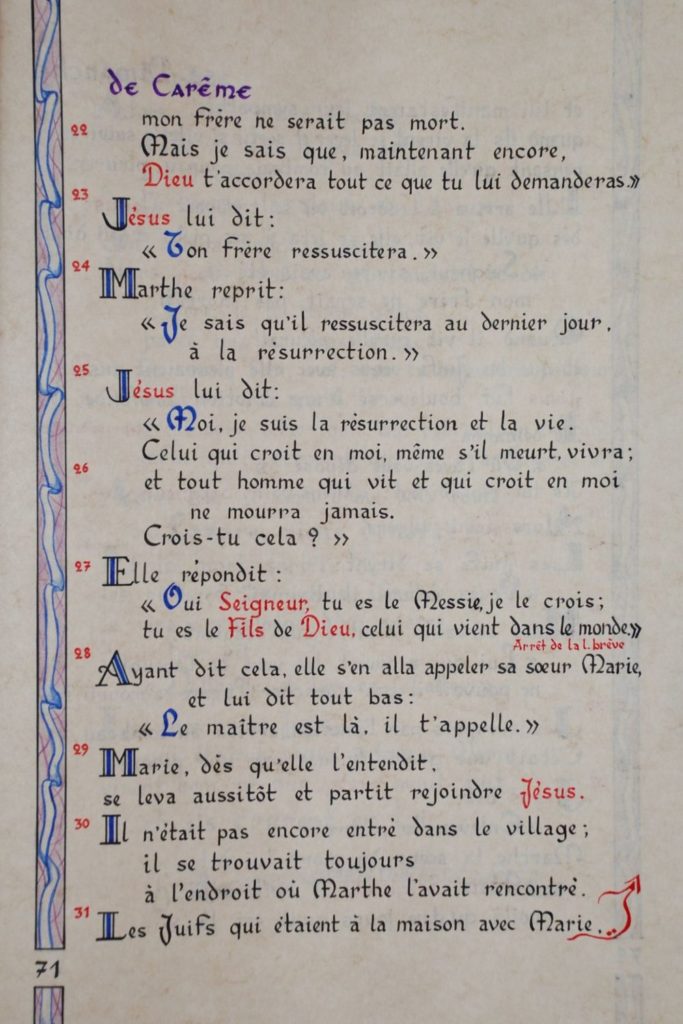 de Carême
mon frère ne serait pas mort.
22 Mais je sais que, maintenant encore,
Dieu t'accordera tout ce que tu lui demanderas.»
23 Jésus lui dit:
« Ton frère ressuscitera. »
24 Marthe reprit:
« Je sais qu'il ressuscitera au dernier jour,
à la résurrection. »
25 Jésus lui dit:
« Moi, je suis la résurrection et la vie.
Celui qui croit en moi, même s'il meurt, vivra;
26 et tout homme qui vit et qui croit en moi
ne mourra jamais.
Crois-tu cela ? »
27 Elle répondit :
« Oui Seigneur, tu es le Messie, je le crois;
tu es le Fils de Dieu, celui qui vient dans le monde.»
Arrêt de la l. brève
28 Ayant dit cela, elle s'en alla appeler sa sœur Marie,
et lui dit tout bas:
« Le maître est là, il t'appelle. »
29 Marie, dès qu'elle l'entendit,
se leva aussitôt et partit rejoindre Jésus.
30 Il n'était pas encore entré dans le village;
il se trouvait toujours
à l'endroit où Marthe l'avait rencontré.
31 Les Juifs qui étaient à la maison avec Marie,
71